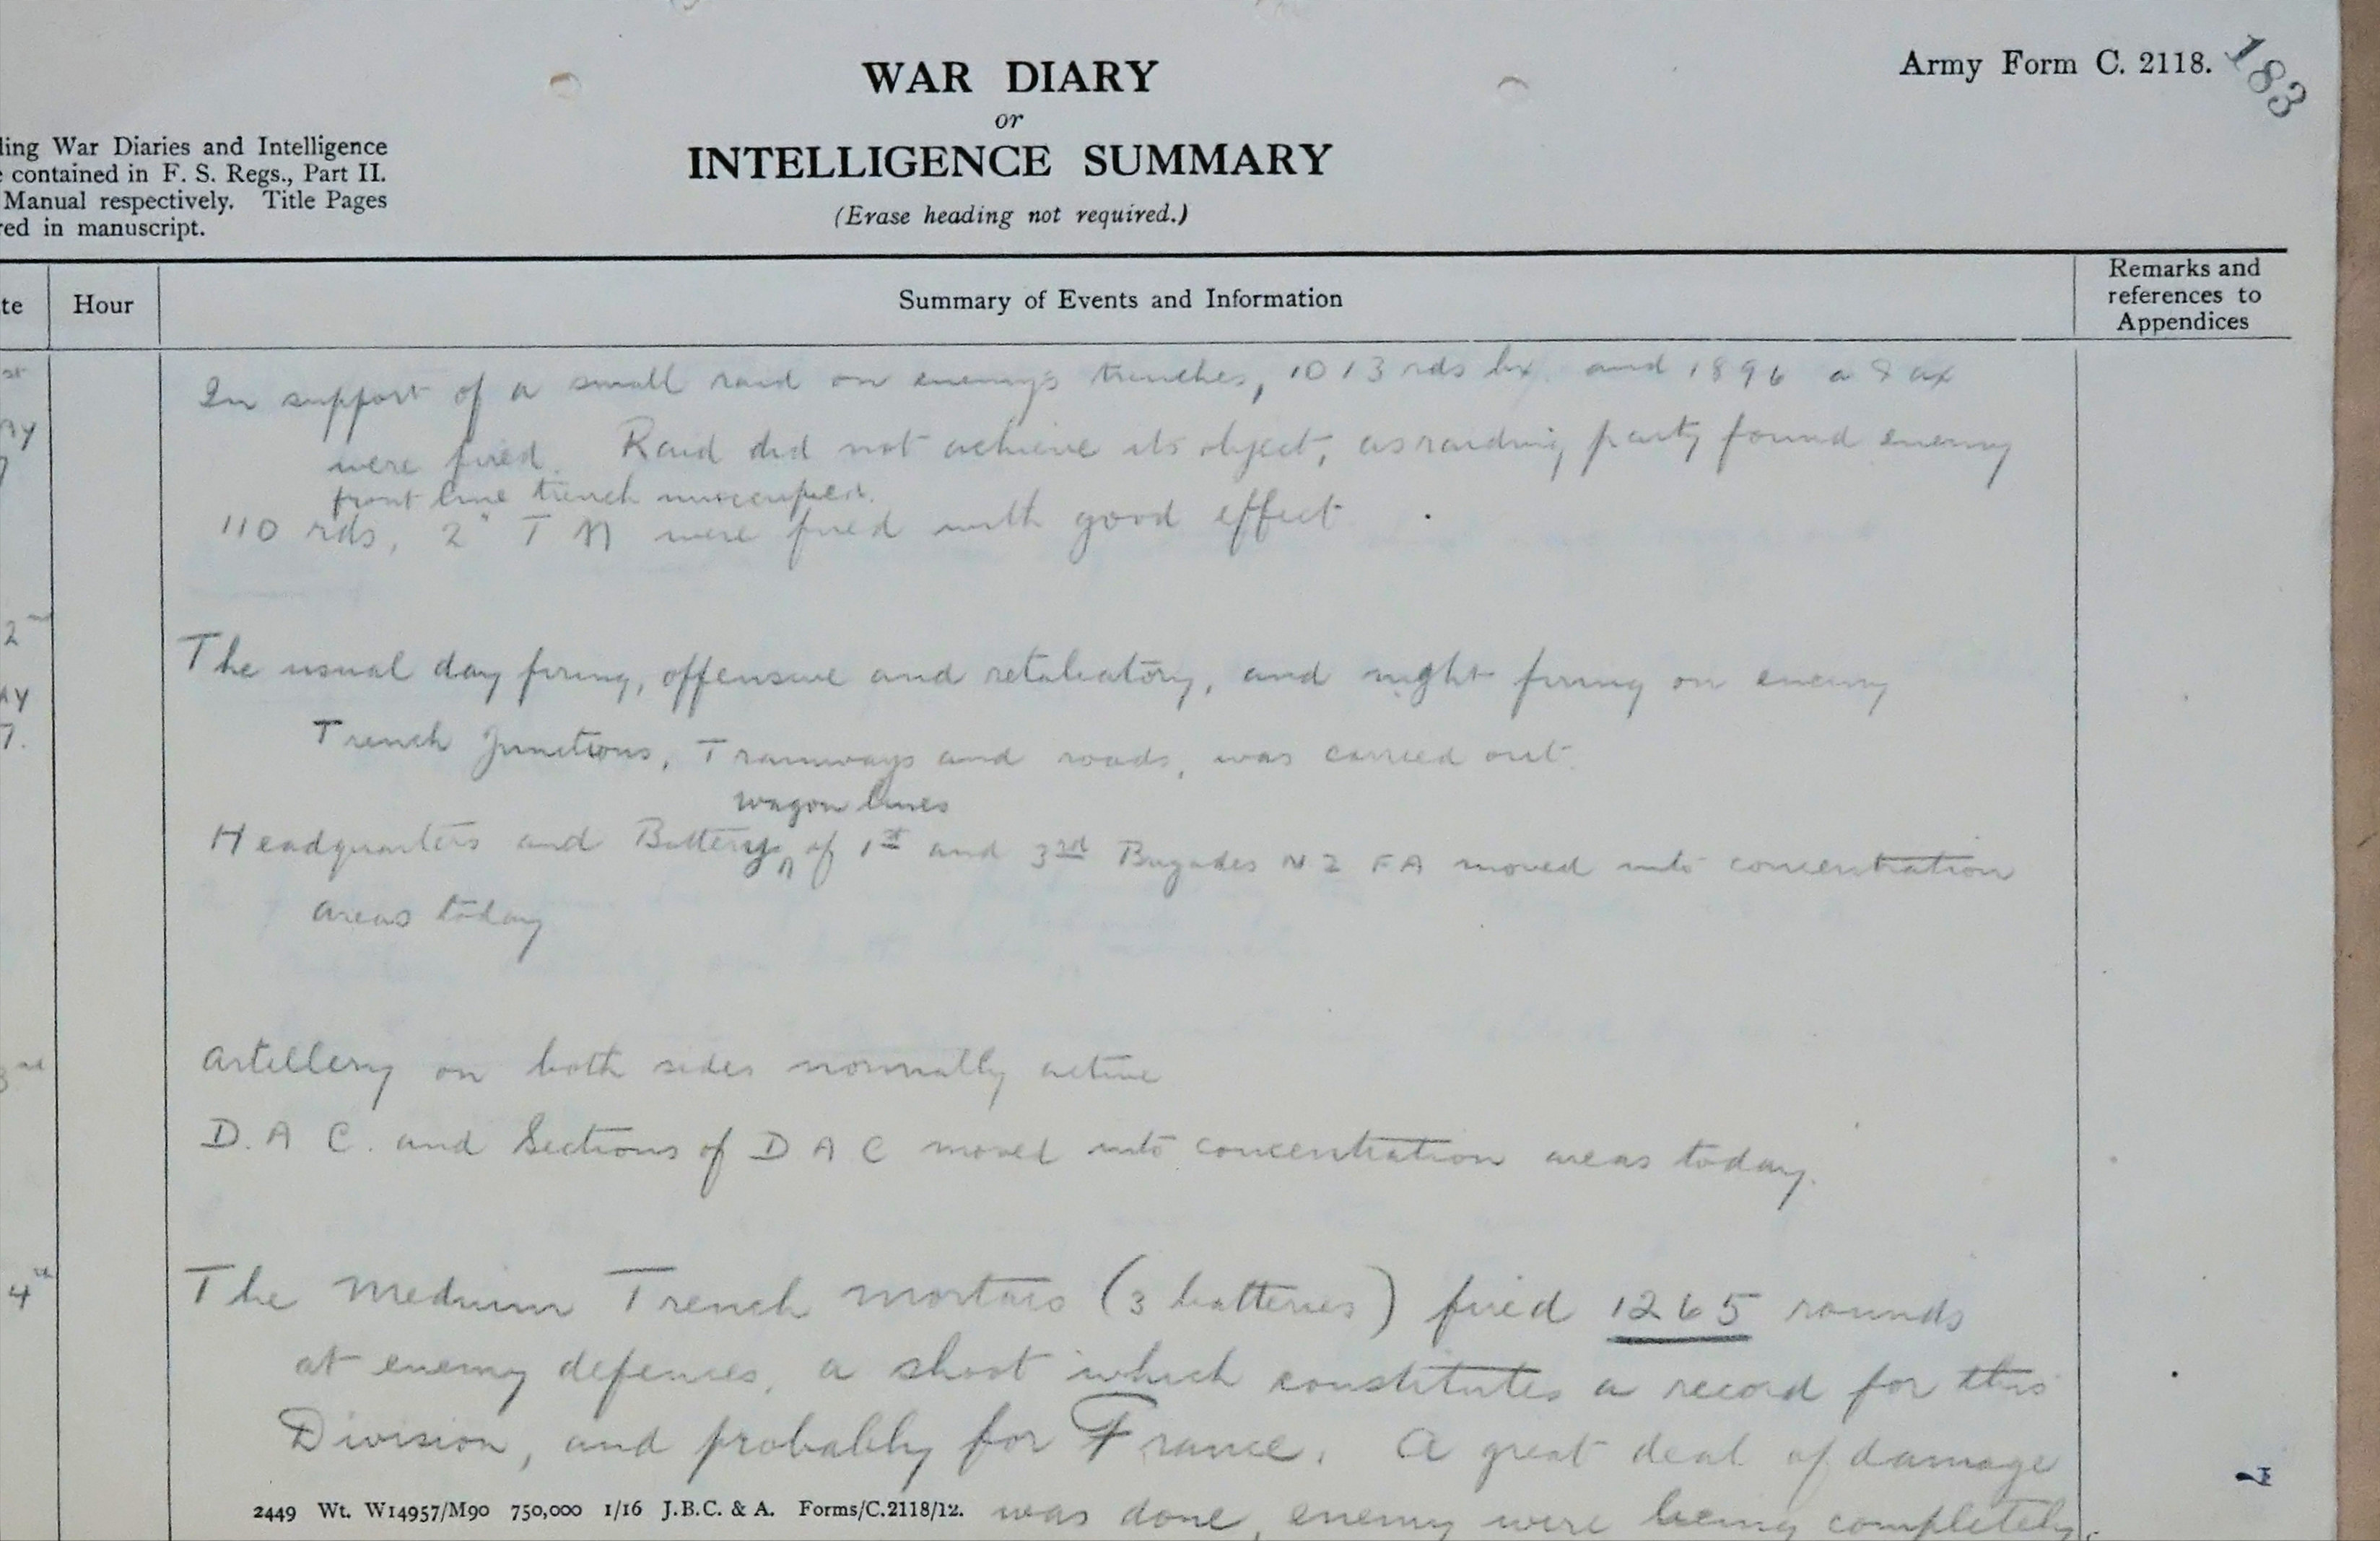 WAR DIARY
Army Form C. 2118.
183
or
INTELLIGENCE SUMMARY
(Erase heading not required.)
ling War Diaries and Intelligence
contained in F. S. Regs., Part II.
Manual respectively. Title Pages
red in manuscript.
te
Hour
Summary of Events and Information
Remarks and
references to
Appendices
st
AY
In support of a small raid on enemys trenches, 1013 rds bx. and 1896 a & ax
were fired. Raid did not achieve its object, as raiding party found enemy
front line trench unoccupied.
110 rds, 2" T M were fired with good effect
2nd
AY
7.
The usual day firing, offensive and retaliatory, and night firing on enemy
Trench Junctions, Tramways and roads, was carried out.
wagon lines
Headquarters and Battery of 1st and 3rd Brigades N Z F A moved into concentration
areas today
3rd
Artillery on both sides normally active
D. A C. and Sections of D A C moved into concentration areas today.
4th
The Medium Trench mortars (3 batteries) fired 1265 rounds
at enemy defences, a shoot which constitutes a record for this
Division, and probably for France. A great deal of damage
was done, enemy were being completely
2449 Wt. W14957/M90 750,000 1/16 J.B.C. & A. Forms/C.2118/12.